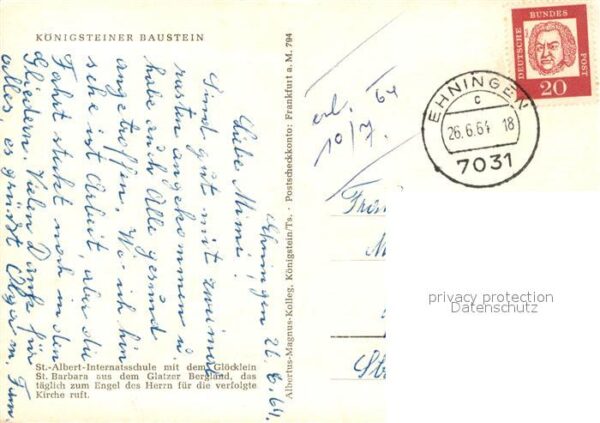 KÖNIGSTEINER BAUSTEIN
Ehningen 26.6.64.
Liebe Mimi!
Sind gut mit zweimal
rasten angekommen u.
habe auch Alle gesund
angetroffen. Wo ich hin
sehe ist Arbeit, aber die
Fahrt steckt noch in den
Gliedern. Vielen Dank für
alles, es grüßt m. Fam
St.-Albert-Internatsschule mit dem Glöcklein
St. Barbara aus dem Glatzer Bergland, das
täglich zum Engel des Herrn für die verfolgte
Kirche ruft.
Albertus-Magnus-Kolleg, Königstein/Ts. - Postscheckkonto: Frankfurt a. M. 794
erl. 64
10/7.
DEUTSCHE BUNDESPOST
20
EHNINGEN
c
26.6.64 18
7031
privacy protection
Datenschutz